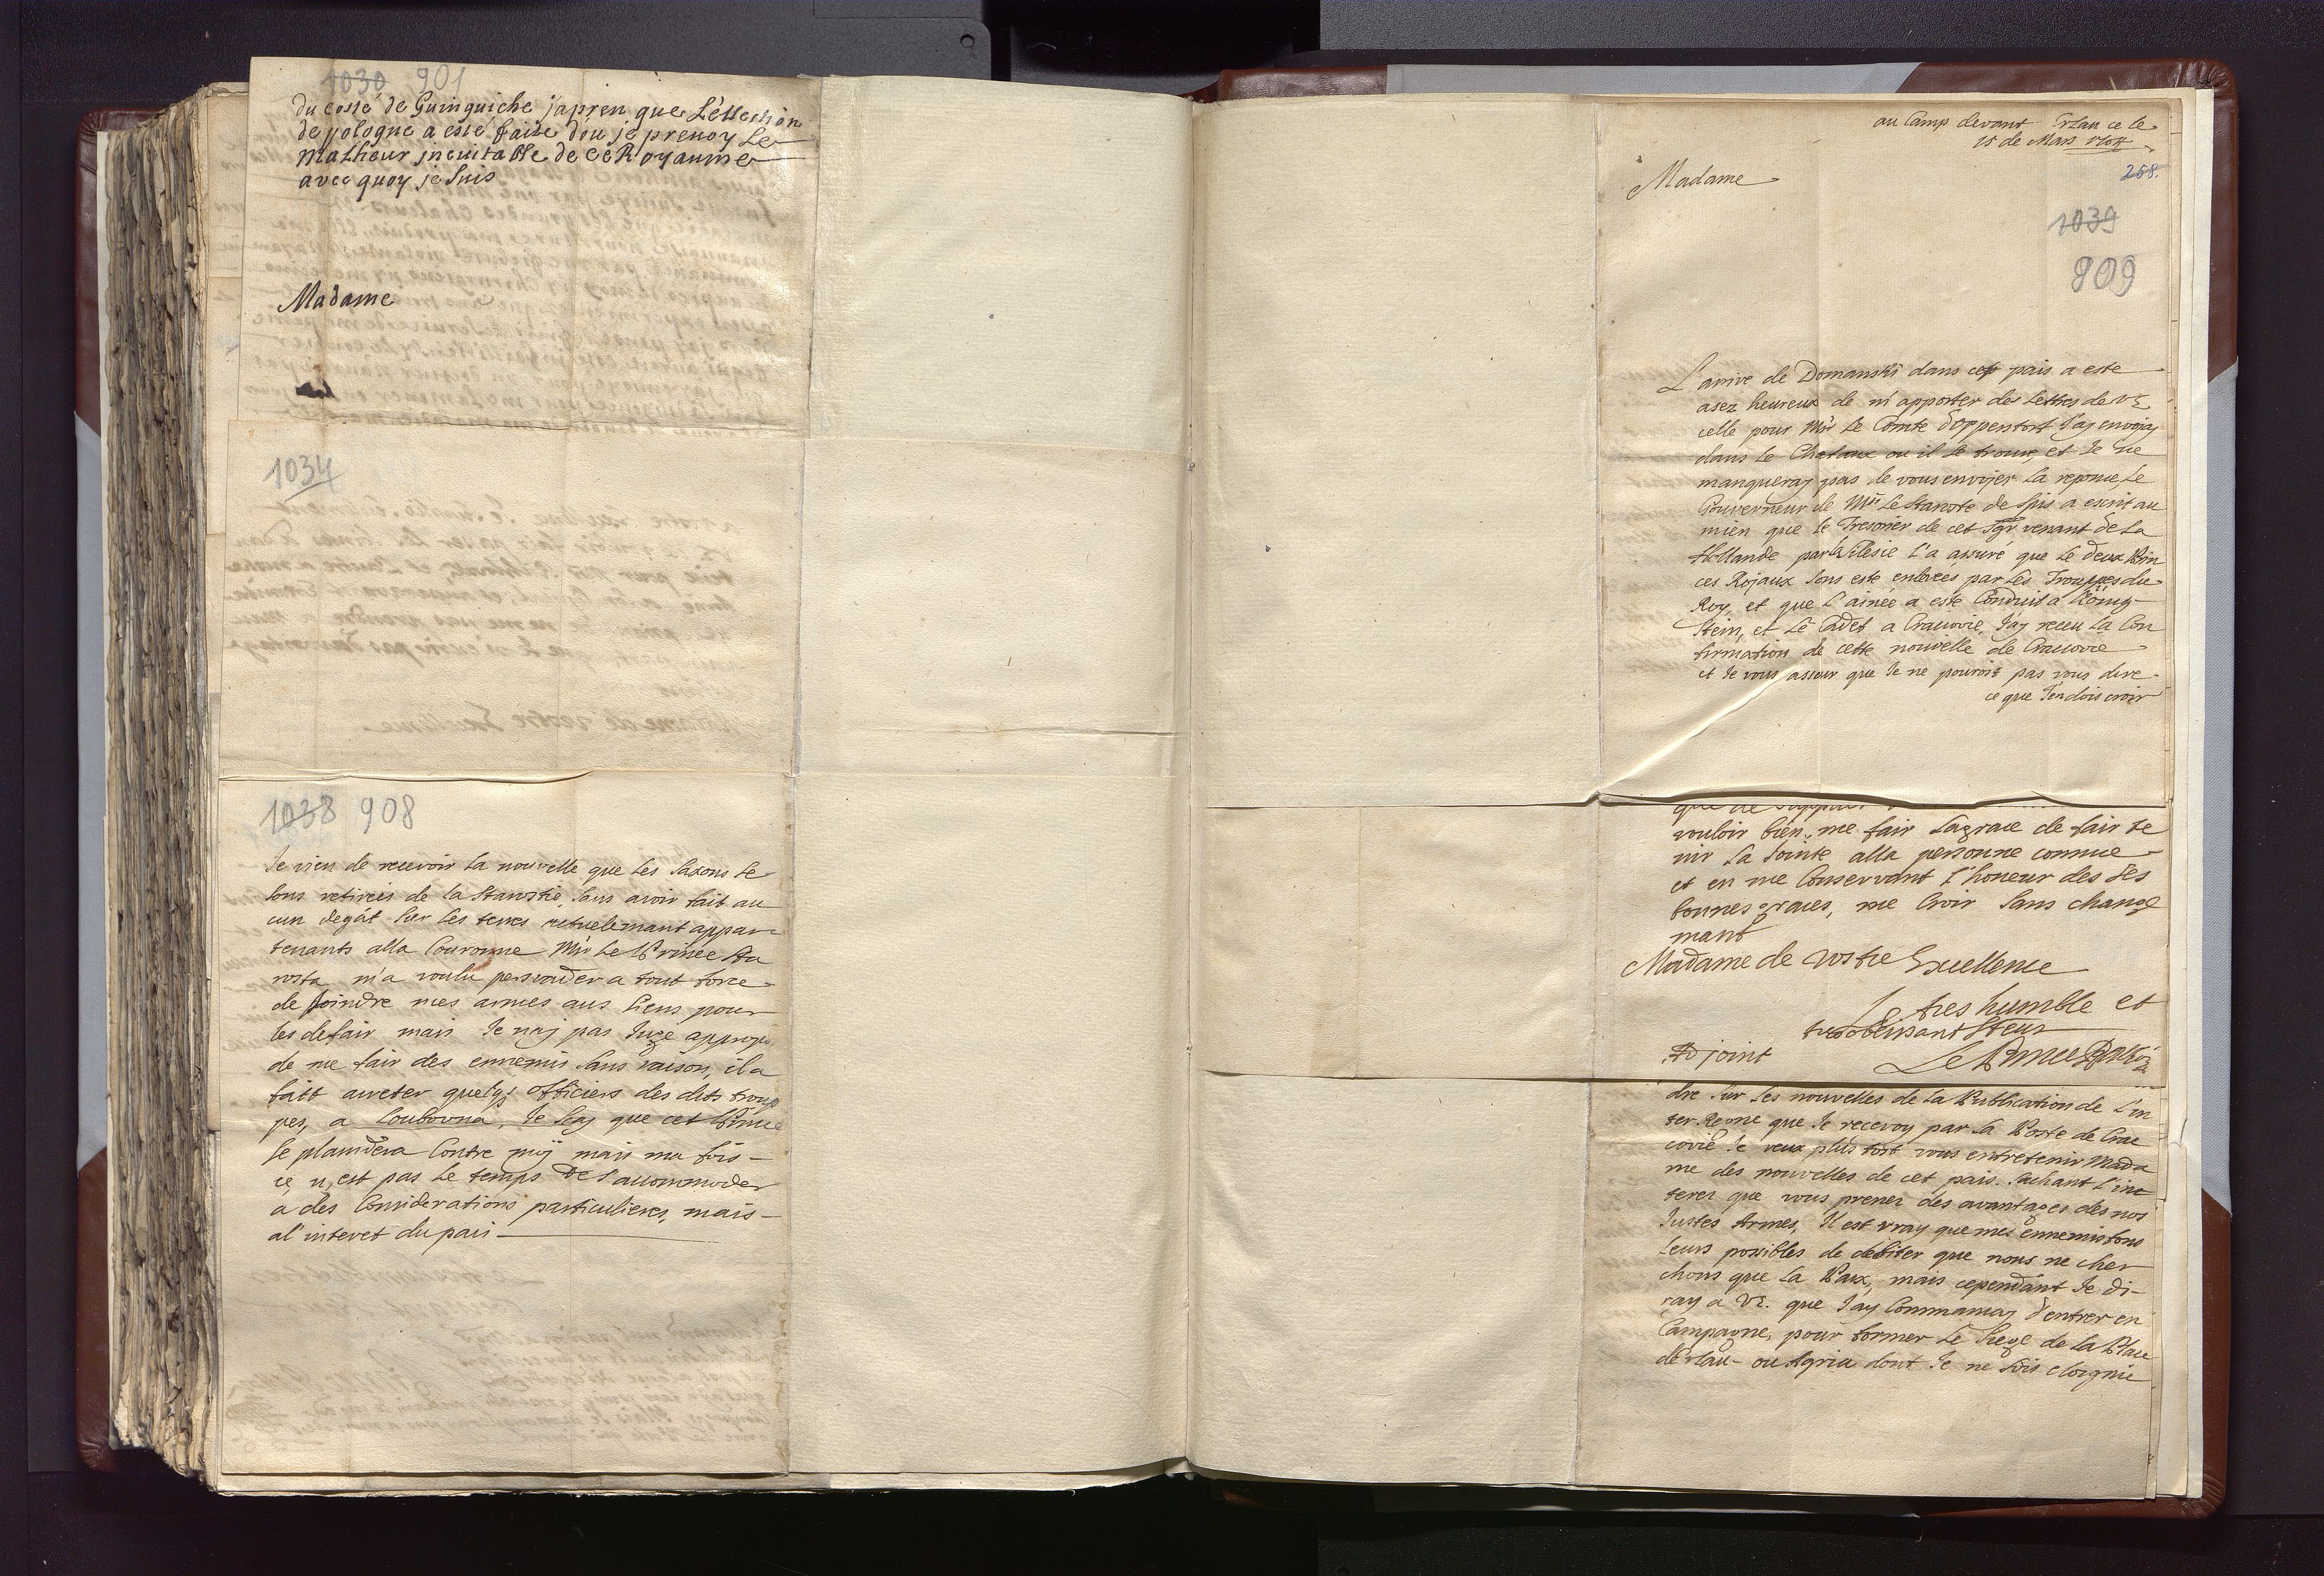 1030 901
du costé de Guinguiche j'apren que L'éllection
de pologne a esté faite dou je prenoy Le
Malheur inevitable de ce Royaume
avec quoy je suis
Madame
1034
1038 908
Je vien de recevoir la nouvelle que les Saxons se
sons retirées de la Starostie, sans avoir fait au
cun degât sur les terres actuelemant appar
tenants alla Couronne Mr Le Prince Sta
rosta m'a voulu persuader a tout force
de joindre mes armes aus siens pour
les defair mais Je n'aj pas Juge appropo
de me fair des ennemis sans raison, il a
fait arreter quelqs officiers des dits troup
pes, a Loubovna, Je sçaj que cet Prince
se plaindera Contre mij mais ma fois
ce n'est pas le temps de s'accommoder
a des Considerations particulieres, mais
al'interet du pais
au Camp devant Erlau ce le
15 de Mars 1704
258.
Madame
1039
909
L'arrive de Domanski dans cet pais a este
asez heureux de m'apporter des Lettres de VE
celle pour Mr Le Comte d'Oppenstorf J'aj envojaj
dans le Chataux ou il se trouve, et Je ne
manqueraj pas de vous envojer la reponse, Le
Gouverneur de Mr Le Staroste de Spis a escrit au
mien que le Tresorier de cet Sgr venant de la
Hollande par la Silesie l'a assuré que le deux Prin
ces Rojaux sons este enlevées par les Trouppes du
Roy, et que l'ainée a este Conduit a König
Stein, et Le Cadet a Cracovie, J'aj receu la Con
firmation de cette nouvelle de Cracovie
et Je vous asseur que Je ne pouroit pas vous dire
ce que J'en dois croir
vouloir bien me fair la grace de fair te
nir la Jointe alla personne connue
et en me Conservant l'honeur des ses
bonnes graces, me Croir sans change
mant
Madame de Vostre Excellence
Le tres humble et
tres obeissant Steur
Adjoint Le Prince Rakoczi
dre sur les nouvelles de la Publication de L'in
ter Regne que Je recevoy par la Poste de Crac
covie Je veux plus tost vous entretenir Mada
me des nouvelles de cet pais. Sachant l'int
terez que vous prenez des avantages des nos
Justes Armes, Il est vray que mes ennemis fons
leurs possibles de debiter que nous ne cher
chons que la Paix, mais cependant Je di-
ray a VE. que J'ay Commancaj d'entrer en
Campagne, pour former Le Siege de la Place
d'Erlau ou Agria dont Je ne suis eloignie